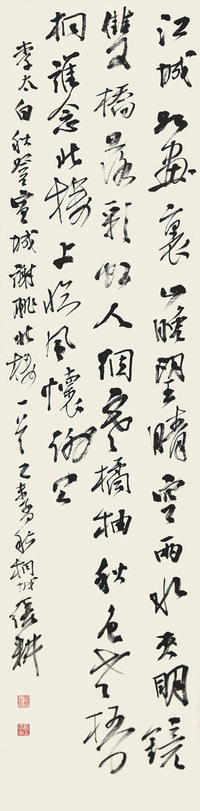 江城如畫裏山晚望晴空兩水夾明鏡
雙橋落彩虹人烟寒橘柚秋色老梧
桐誰念北樓上臨風懷謝公
李太白秋登宣城謝朓北樓一首乙未秋桐城張耕